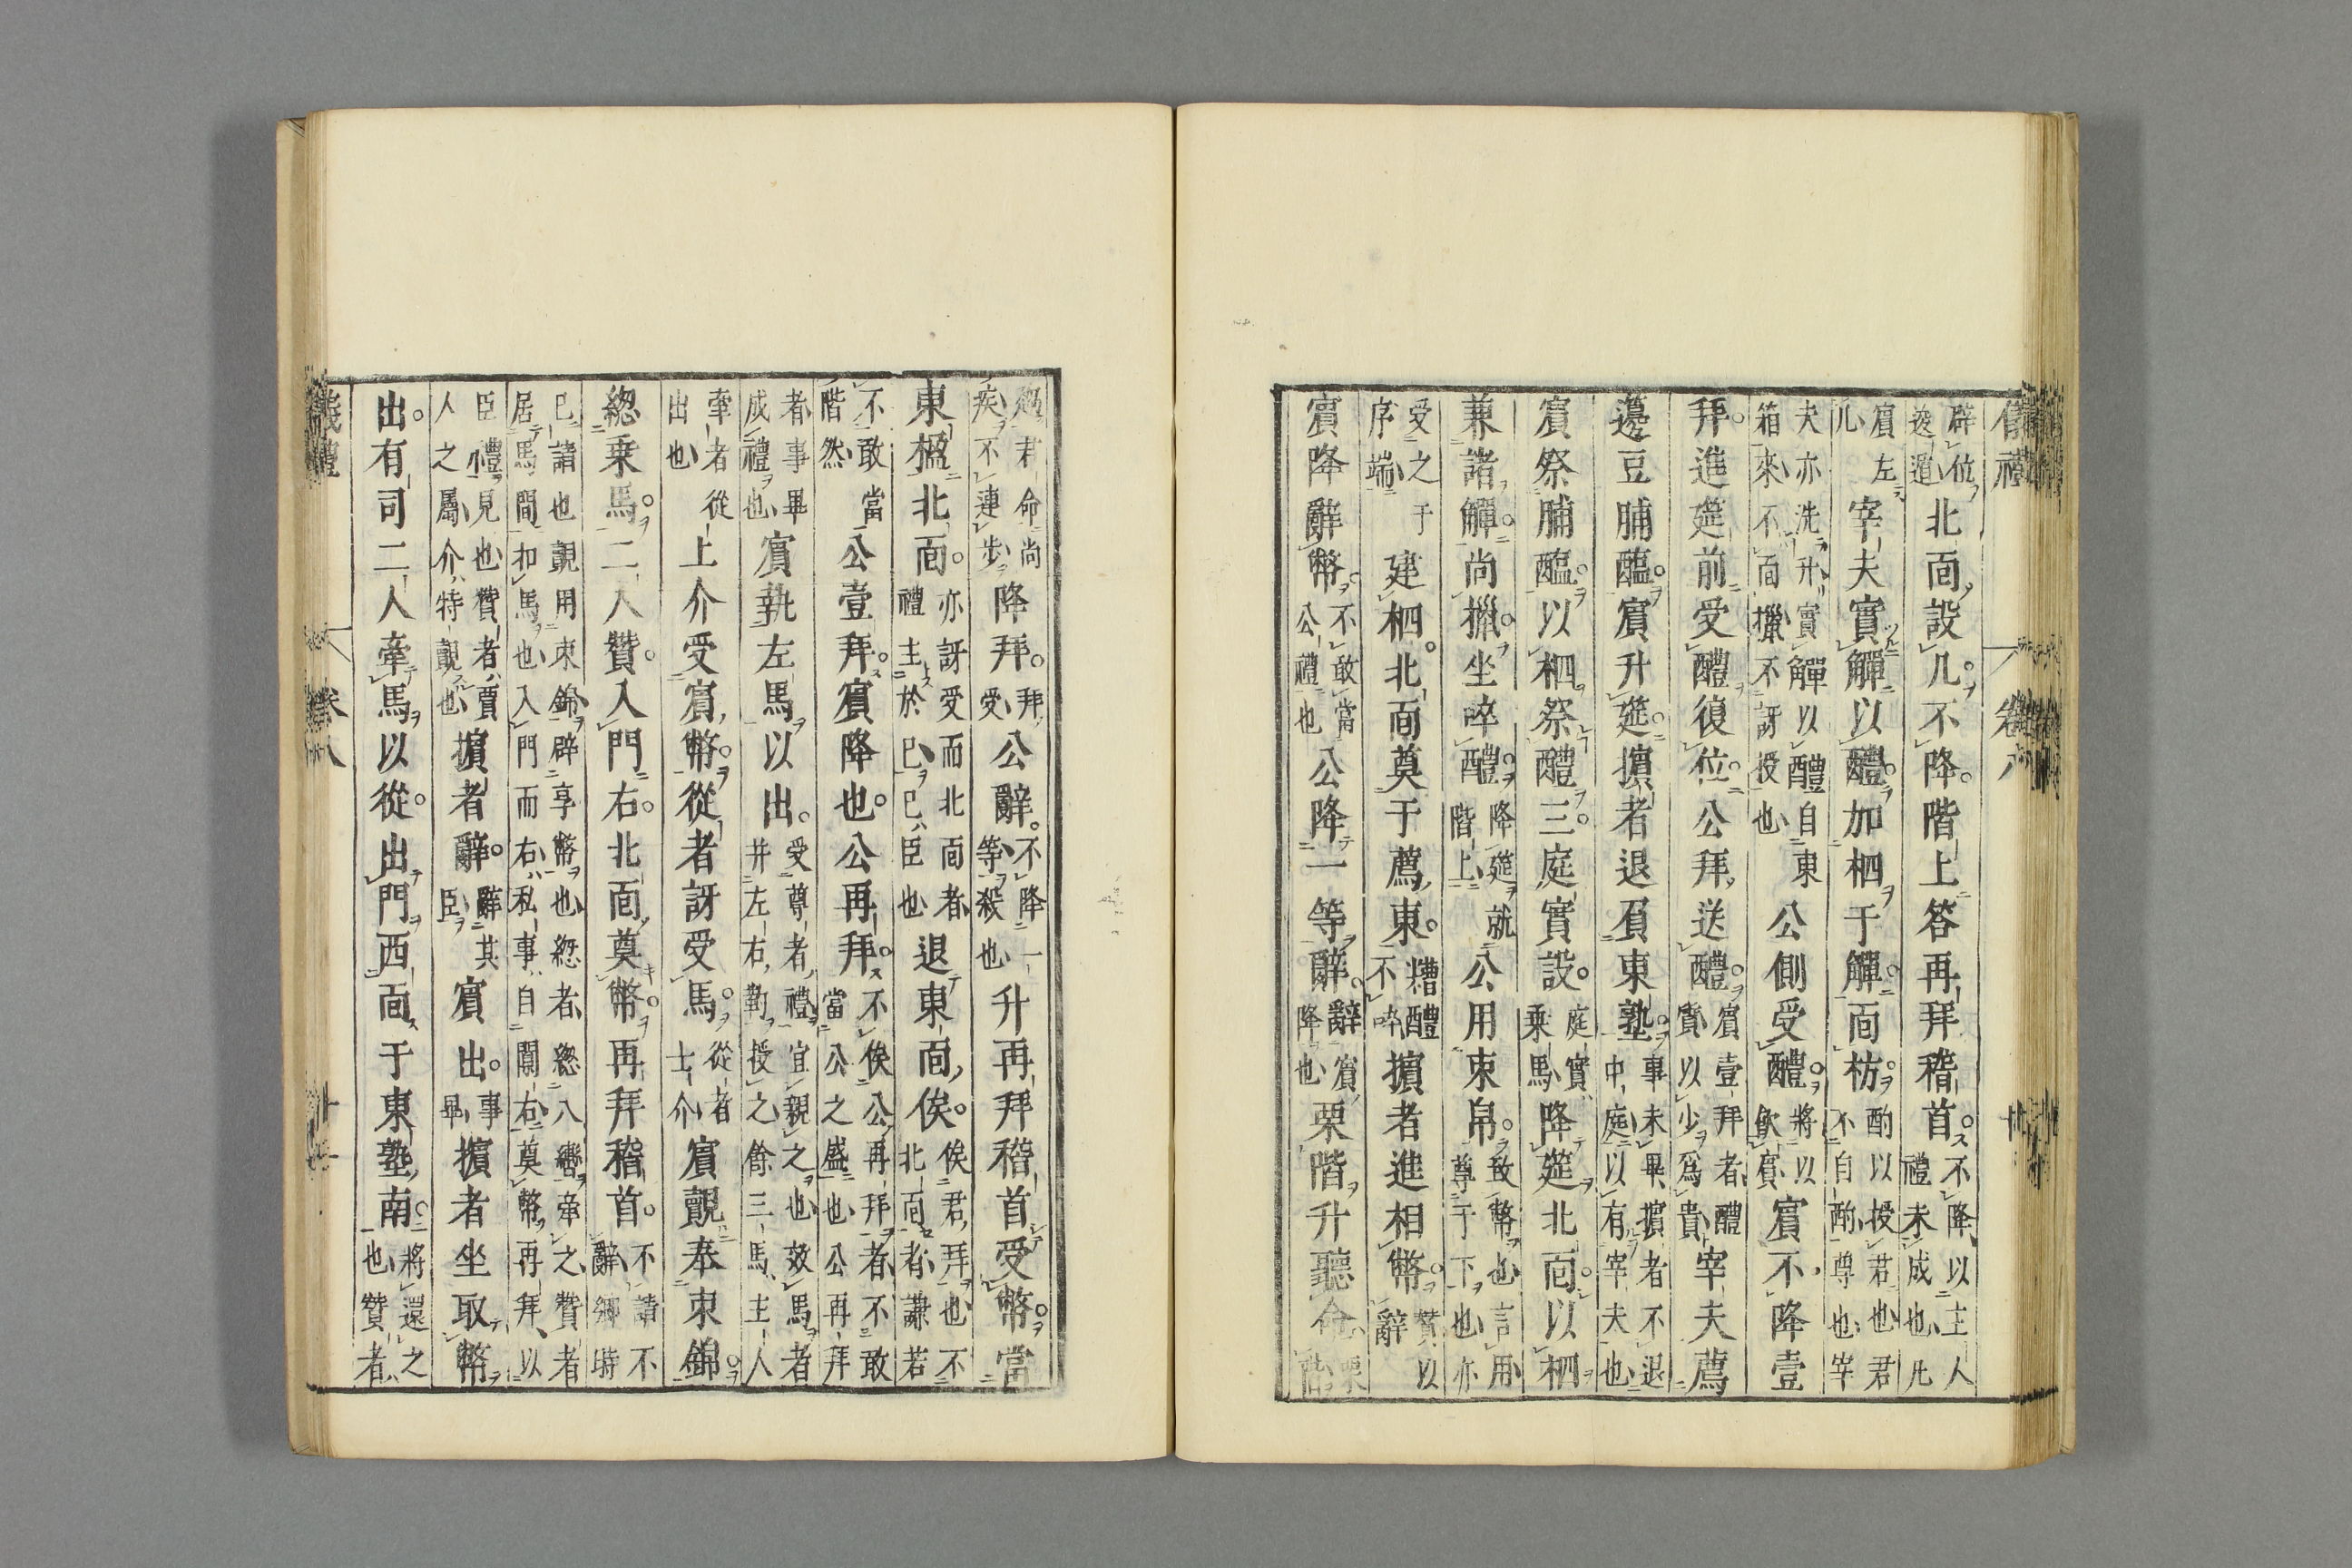 儀禮 卷八 十
辟位逡遁北面設几不降階上答再拜稽首不降以主人禮未成也凡
賓左几宰夫實觶以醴加柶于觶面枋酌以授君也君不自酌尊也宰
夫亦洗升實觶以醴自東箱來不面擸不訝授也公側受醴將以飲賓賓不降壹
拜進筵前受醴復位公拜送醴賓壹拜者醴質以少爲貴宰夫薦
籩豆脯醢賓升筵擯者退負東塾事未畢擯者不退中庭以有宰夫也
賓祭脯醢以柶祭醴三庭實設庭實乘馬降筵北面以柶
兼諸觶尚擸坐啐醴降筵就階上公用束帛致幣也言用尊于下也亦
受之于序端建柶北面奠于薦東糟醴不啐擯者進相幣贊以辭
賓降辭幣不敢當公禮也公降一等辭辭賓降也栗階升聽命栗階
趨君命尚疾不連步降拜拜受公辭不降一等殺也升再拜稽首受幣當
東楹北面亦訝受而北面者禮主於己己臣也退東面俟俟君拜也不北面者謙若
不敢當階然公壹拜賓降也公再拜不俟公再拜者不敢當公之盛也公再拜
者事畢成禮也賓執左馬以出受尊者禮宜親之也效馬者并左右靮授之餘三馬主人
牽者從出也上介受賓幣從者訝受馬從者士介賓覿奉束錦
總乘馬二人贊入門右北面奠幣再拜稽首不請不辭鄉時
已請也覿用束錦辟享幣也總者總八轡牽之贊者居馬間扣馬也入門而右私事自闑右奠幣再拜以
臣禮見也贊者賈人之屬介特覿也擯者辭辭其臣賓出事畢擯者坐取幣
出有司二人牽馬以從出門西面于東塾南將還之也贊者
儀禮 卷八 十一